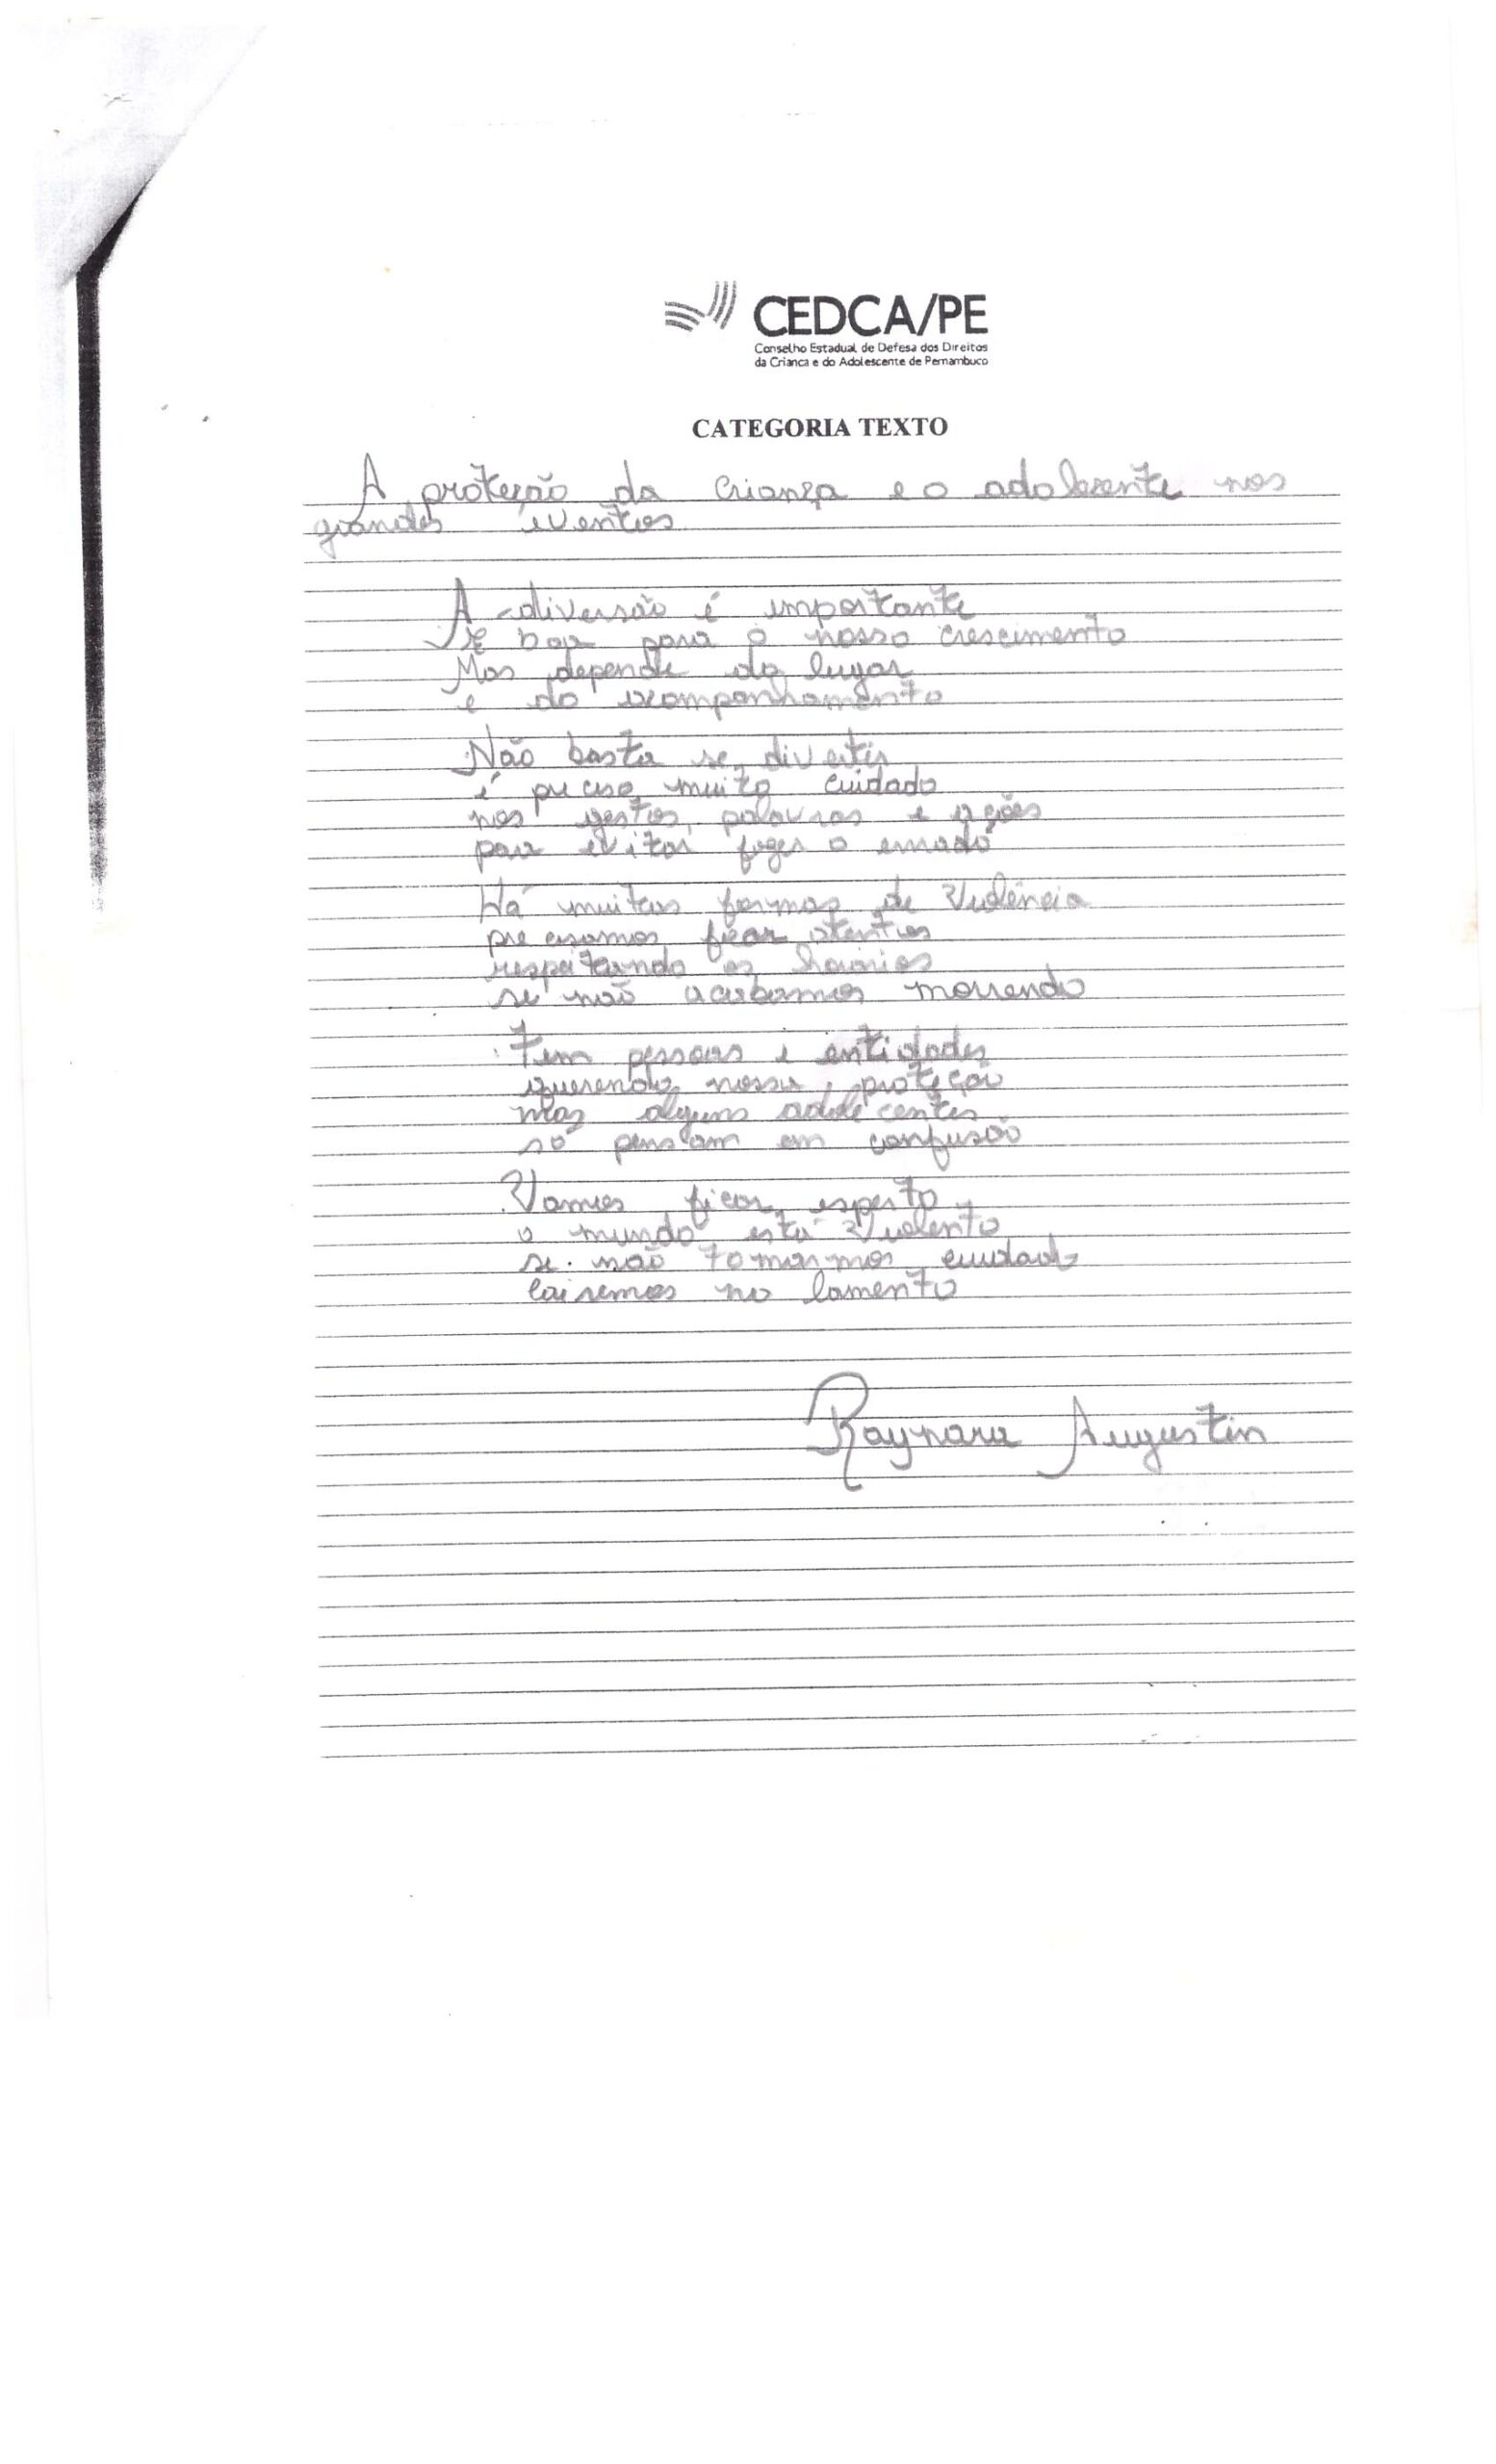 CEDCA/PE
Conselho Estadual de Defesa dos Direitos
da Criança e do Adolescente de Pernambuco
CATEGORIA TEXTO
A proteção da Criança e o adolescente nos
grandes eventos
A diversão é importante
É boa para o nosso crescimento
Mas depende do lugar
e do acompanhamento
Não basta se divertir
é preciso muito cuidado
nos gestos, palavras e ações
para evitar fazer o errado
Há muitas formas de Violência
precisamos ficar atentos
respeitando os horários
se não acabamos morrendo
Tem pessoas e entidades
querendo nossa proteção
mas alguns adolecentes
só pensam em confusão
Vamos ficar esperto
o mundo está Violento
se não tomarmos cuidado
Cairemos no lamento
Raynara Augustin